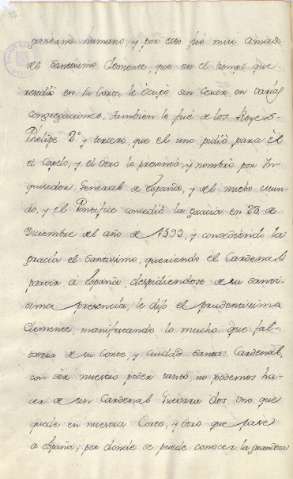 govierno humano y por esto fué muy amado
del Santisimo Clemente, que en el tiempo que
residió en la Corte le ocupó sin cesar en varias
congregaciones. Tambien le fué de los Reyes
Phelipe 2º y tercero que el uno pidió para él
el Capelo, y el otro la presentó y nombró por In-
quisidor General de España, y del nuevo mun-
do, y el Pontifice concedió la gracia en 23 de
Diciembre del año de 1599, y concediendo la
gracia el Santisimo, queriendo el Cardenal
partir a España despidiendose de su santi-
sima presencia, le dijo el prudentisimo
Clemente, manifestando lo mucho que fal-
taria de su Corte y Cardenal,
con ser nuestro poder tanto no podemos ha-
cer de un Cardenal Guevara dos uno que
quede en nuestra Corte, y otro que pase
a España; por donde se puede conocer la grandeza